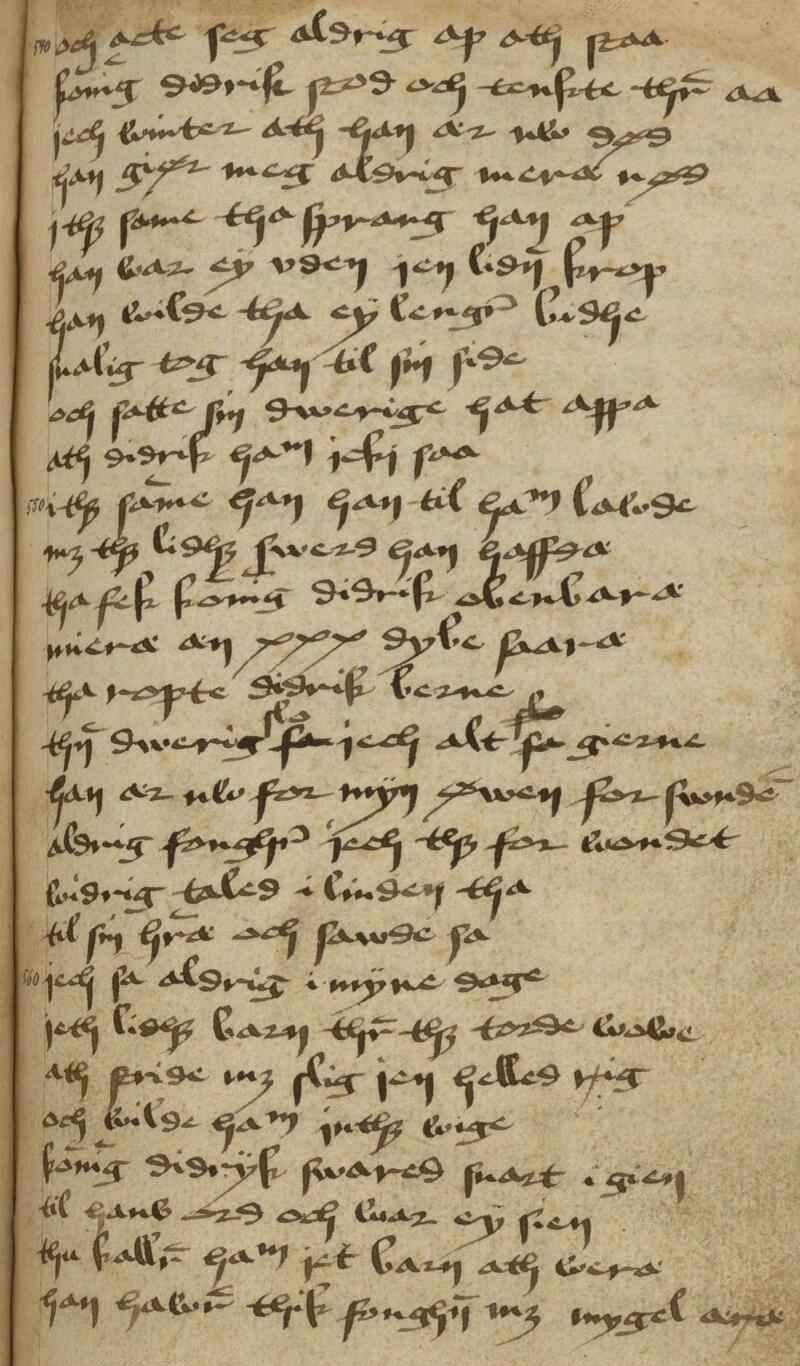 540 och acte seg aldrig ap ath staa
koning didrik stod och tenkte thr̄ aa
jech winter ath han ær nw død
han giør meg aldrig meræ nød
j thꝫ same tha sprang han ap
han war ey vden jen lidn̄ krop
han wilde tha ey lengr̄ bidhe
snalig tog han til sin side
och satte sin dwerige hat appa
ath didrik haᵐ jckj saa
550 i thꝫ sam̄e han han til haᵐ lawde
mꝫ thꝫ lidhꝫ swerd han haffdæ
tha fek kon̄ig didrik obenbaræ
mieræ æn xxx dybe saaræ
tha ropte didrik berne
thn̄ dwerig slo jech alt gierne
han ær nw for myn øwen for swndē
aldrig fonghr̄ jech thꝫ for wondet
widrig taled i linden tha
til sin hr̄æ och sawde sa
560 jech sa aldrig i myne dage
jeth lidhꝫ barn thr̄ thꝫ torde wowe
ath stride mꝫ slig jen helled rig
och wilde haᵐ inthꝫ wige
kon̄ig didryk swared snart i gien
til hans ord och war ey sien
thu kallr̄ haᵐ jet barn ath weræ
han hawr̄ thik fonghn̄ mꝫ mygel æræ